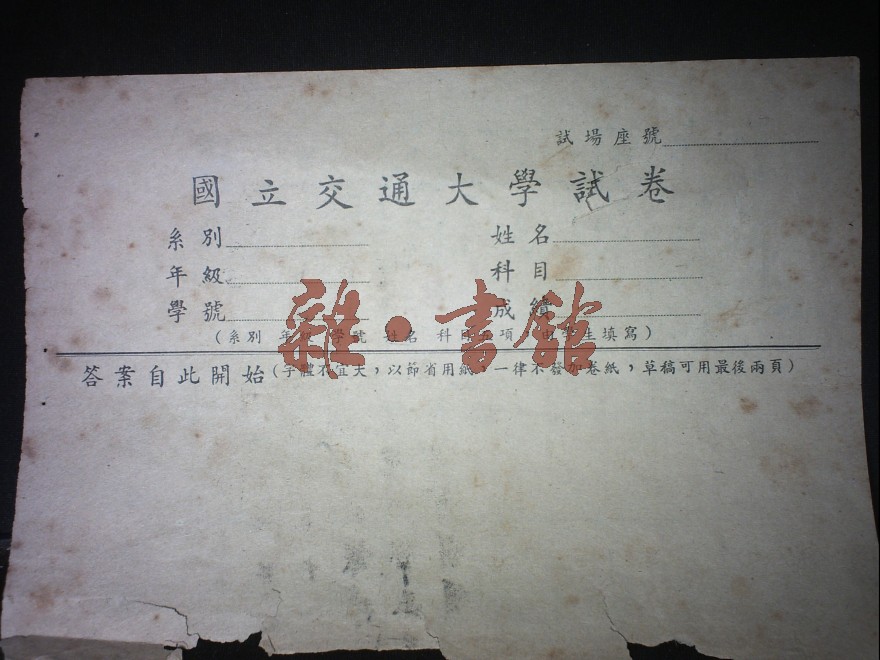 試場座號
國立交通大學試卷
系別 姓名
年級 科目
學號 成績
(系別 年 學號 姓名 科目 項 由 生填寫)
答案自此開始(字體不宜大,以節省用紙,一律不發加卷紙,草稿可用最後兩頁)
雜·書館